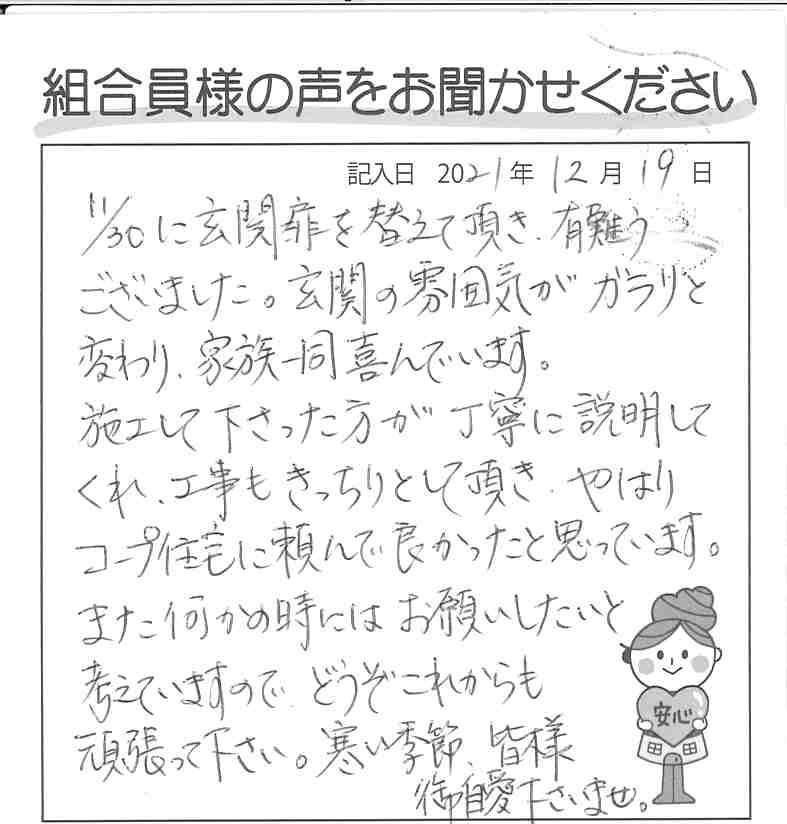 組合員様の声をお聞かせください
記入日 2021年 12月 19日
11/30に玄関扉を替えて頂き、有難う
ございました。玄関の雰囲気が ガラリと
変わり、家族一同喜んでいます。
施工して下さった方が丁寧に説明して
くれ、工事もきっちりとして頂き、やはり
コープ住宅に頼んで良かったと思っています。
また何かの時にはお願いしたいと
考えていますので、どうぞこれからも
頑張って下さい。寒い季節、皆様
御自愛下さいませ。
安心